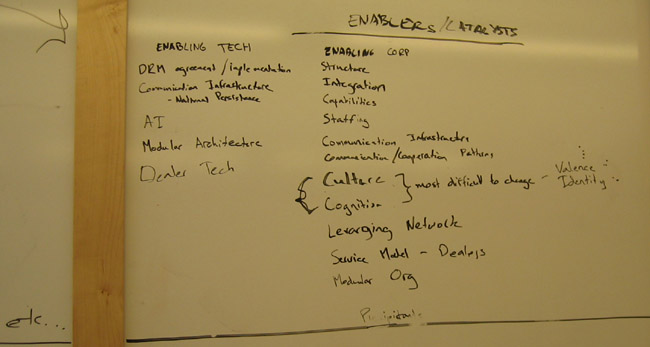 ENABLERS/CATALYSTS
ENABLING TECH
DRM agreement/implementation
Communication Infrastructure
- National Persistence
AI
Modular Architecture
Dealer Tech
ENABLING CORP
Structure
Integration
Capabilities
Staffing
Communication Infrastructure
Communication/Cooperation Patterns
Culture
Cognition
} most difficult to change - Valence
Identity
Leveraging Network
Service Model - Dealers
Modular Org
etc...